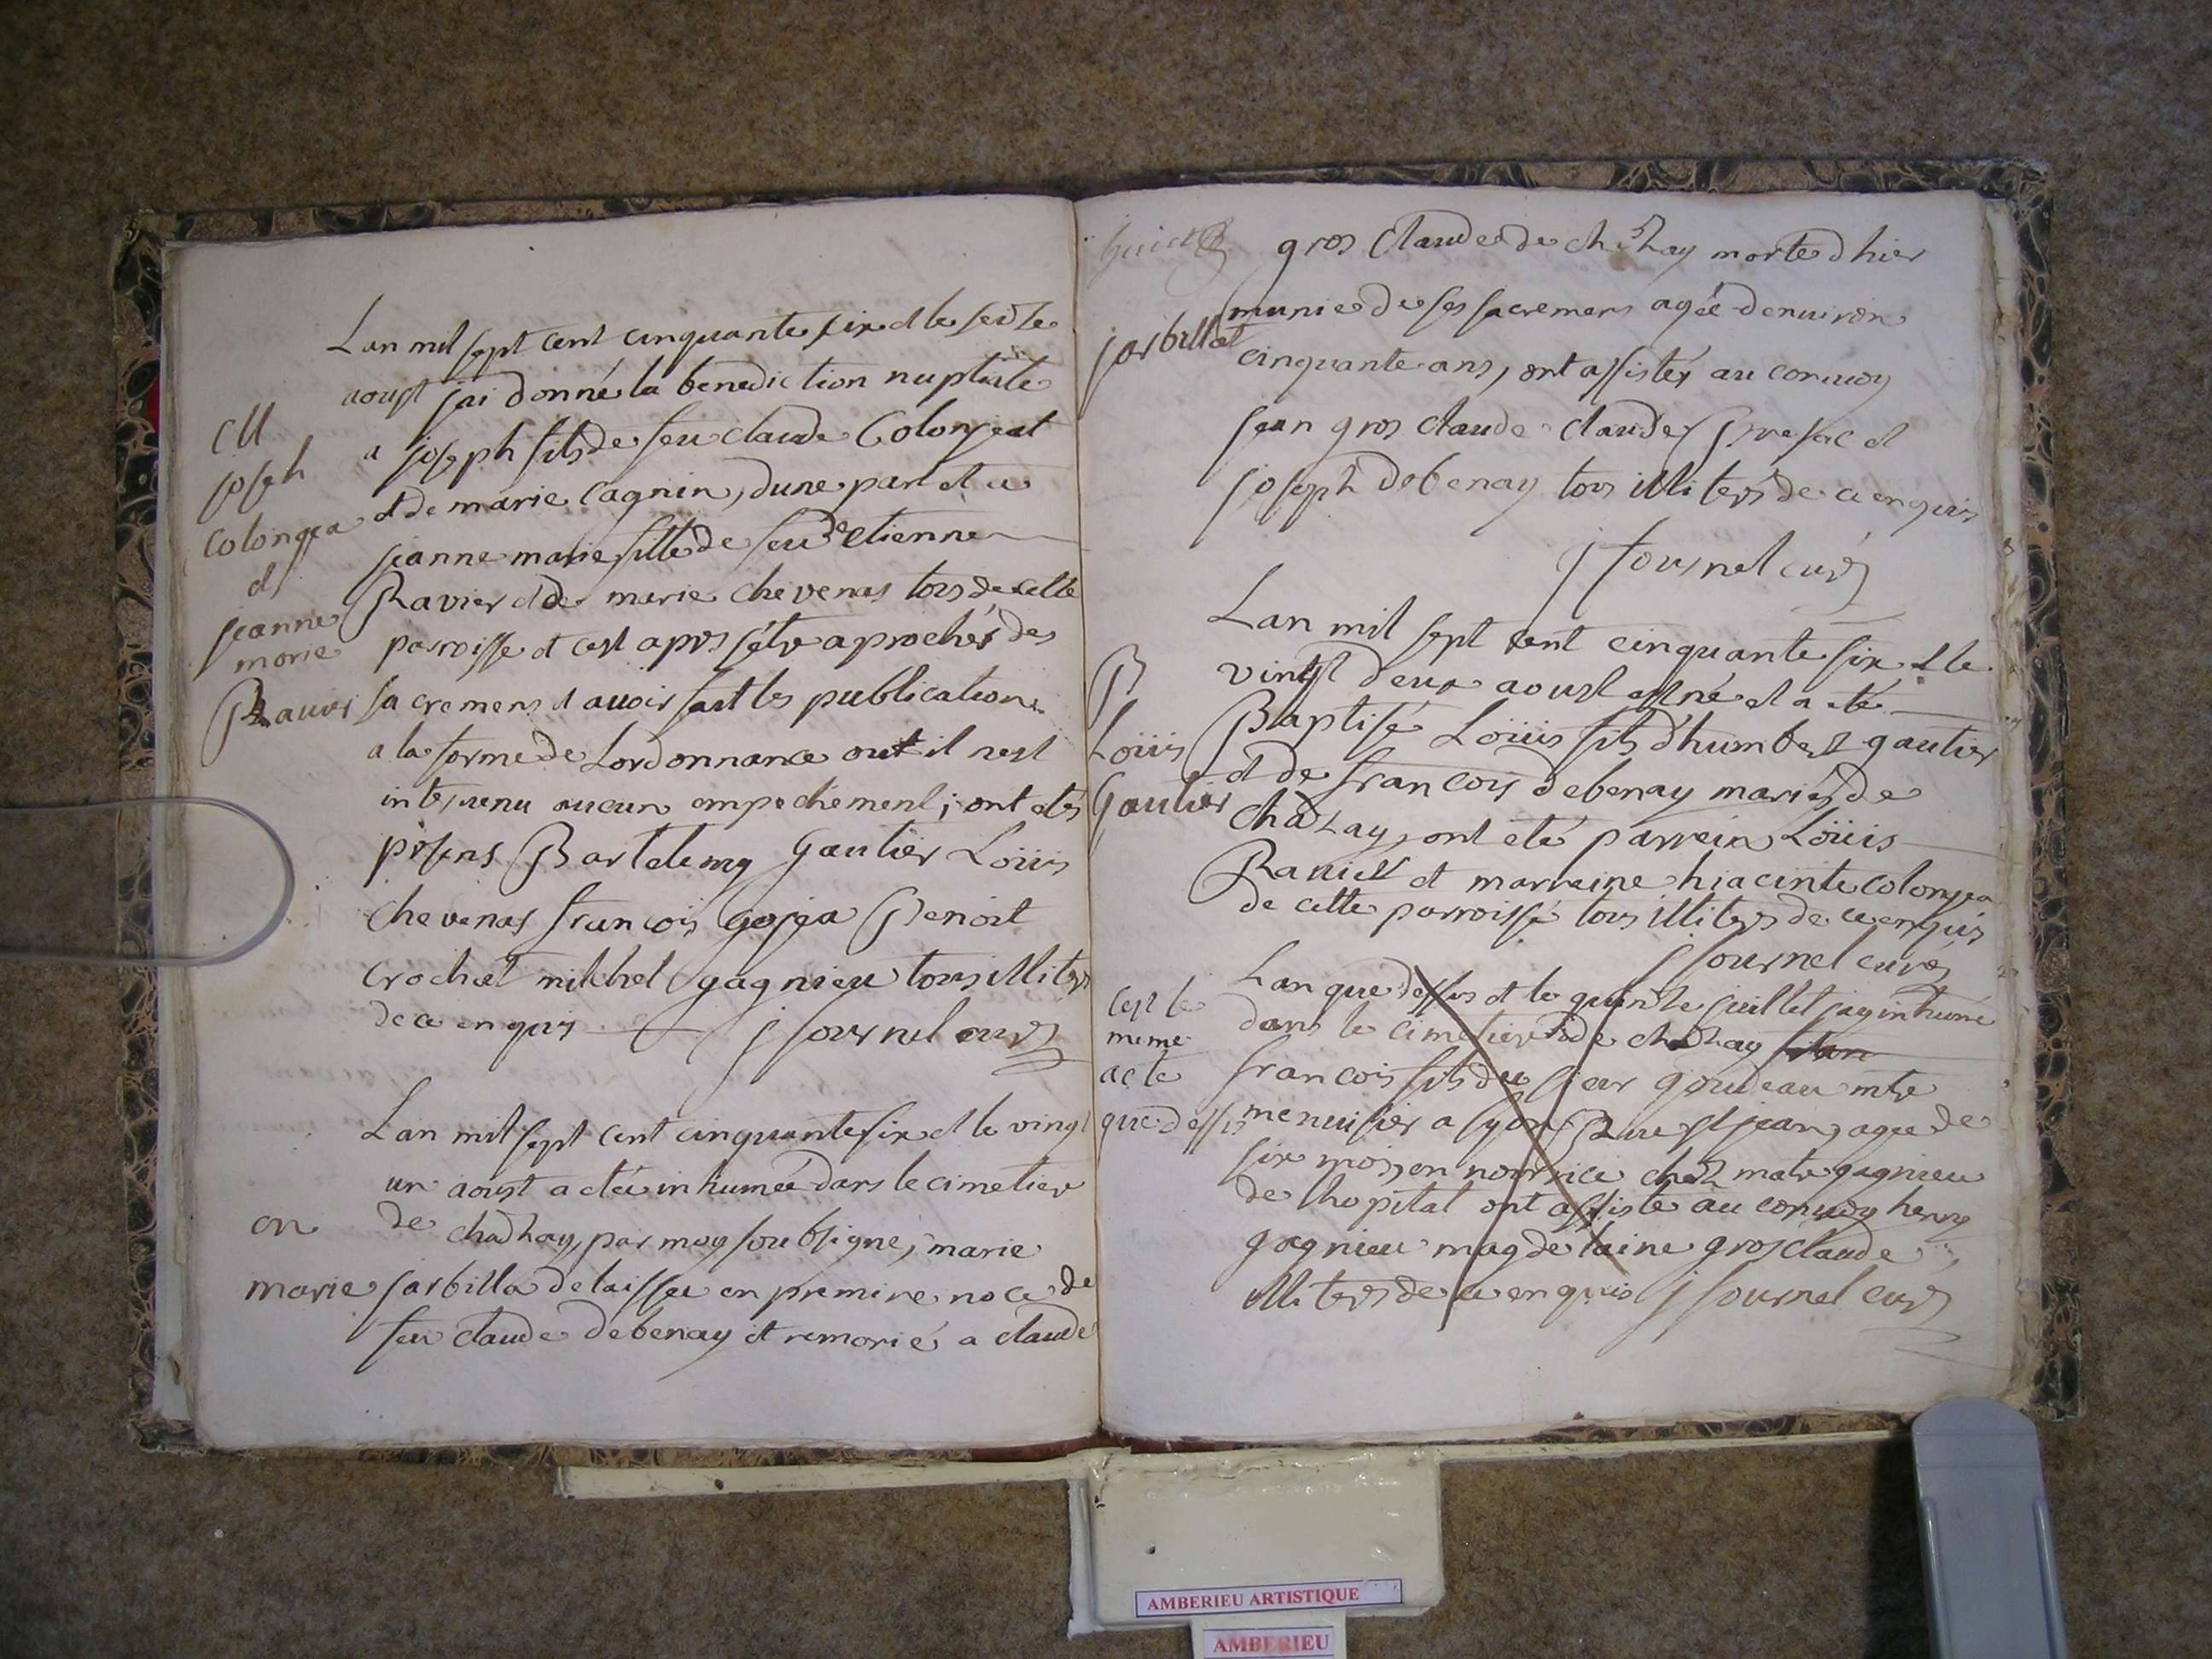 Lan mil sept cent cinquante six et le seize
aoust jai donné la benediction nuptiale
a joseph fils de feu claude Colonjeat
et de marie Cagnin, dune part et a
jeanne marie fille de feu etienne
Ravier et de marie chevenas tous de cette
parroisse et cest apres setre aprochés des
sacremens et avoir fait les publications
a la forme de Lordonnance out il nest
intervenu aucun empechement ; ont etés
presens Bartelemy Gautier Loüis
chevenas francois gojea Benoit
crochet milchel gagnieu tous illiters
de ce enquis j fournel curé
M
joseph
Colongea
et
jeanne
marie
Ravier
Lan mil sept cent cinquante six et le vingt
un aoust a eteé inhumeé dans le cimetier
de chazay, par moy soubsigne, marie
jarbilla delaissée en premire noce de
feu claude debenay et remarié a claude
on
marie
gros Claude de chazay morte dhier
munie de ses sacremens agée denviron
cinquante ans, ont assister au convoy
jean gros claude claude et
joseph debenay tous illiters de ce enquis
j fournel curé
jarbillat
Lan mil sept cent cinquante six et le
vingt deux aoust est né et a eté
Baptisé Loüis fils dhumbert gautier
et de francois debenay mariés de
chazay, ont eté parrein Loüis
Ravier et marreine hiacinte colongea
de cette parroisse tous illiters de ce enquis
j fournel curé
B
Loüis
Gautier
Lan que dessus et le quinze juillet jay inhumé
dans le cimetier de chazay
francois fils du sieur goudeau mtre
menuisier a lyon Rue st jean, agee de
six mois, en nourrice chez gagnieu
de lhopital ont assisté au convoy henry
gagnieu magdelaine gros claude
illiters de ce enquis j fournel curé
cest le
meme
acte
que dessus
AMBERIEU ARTISTIQUE
AMBERIEU